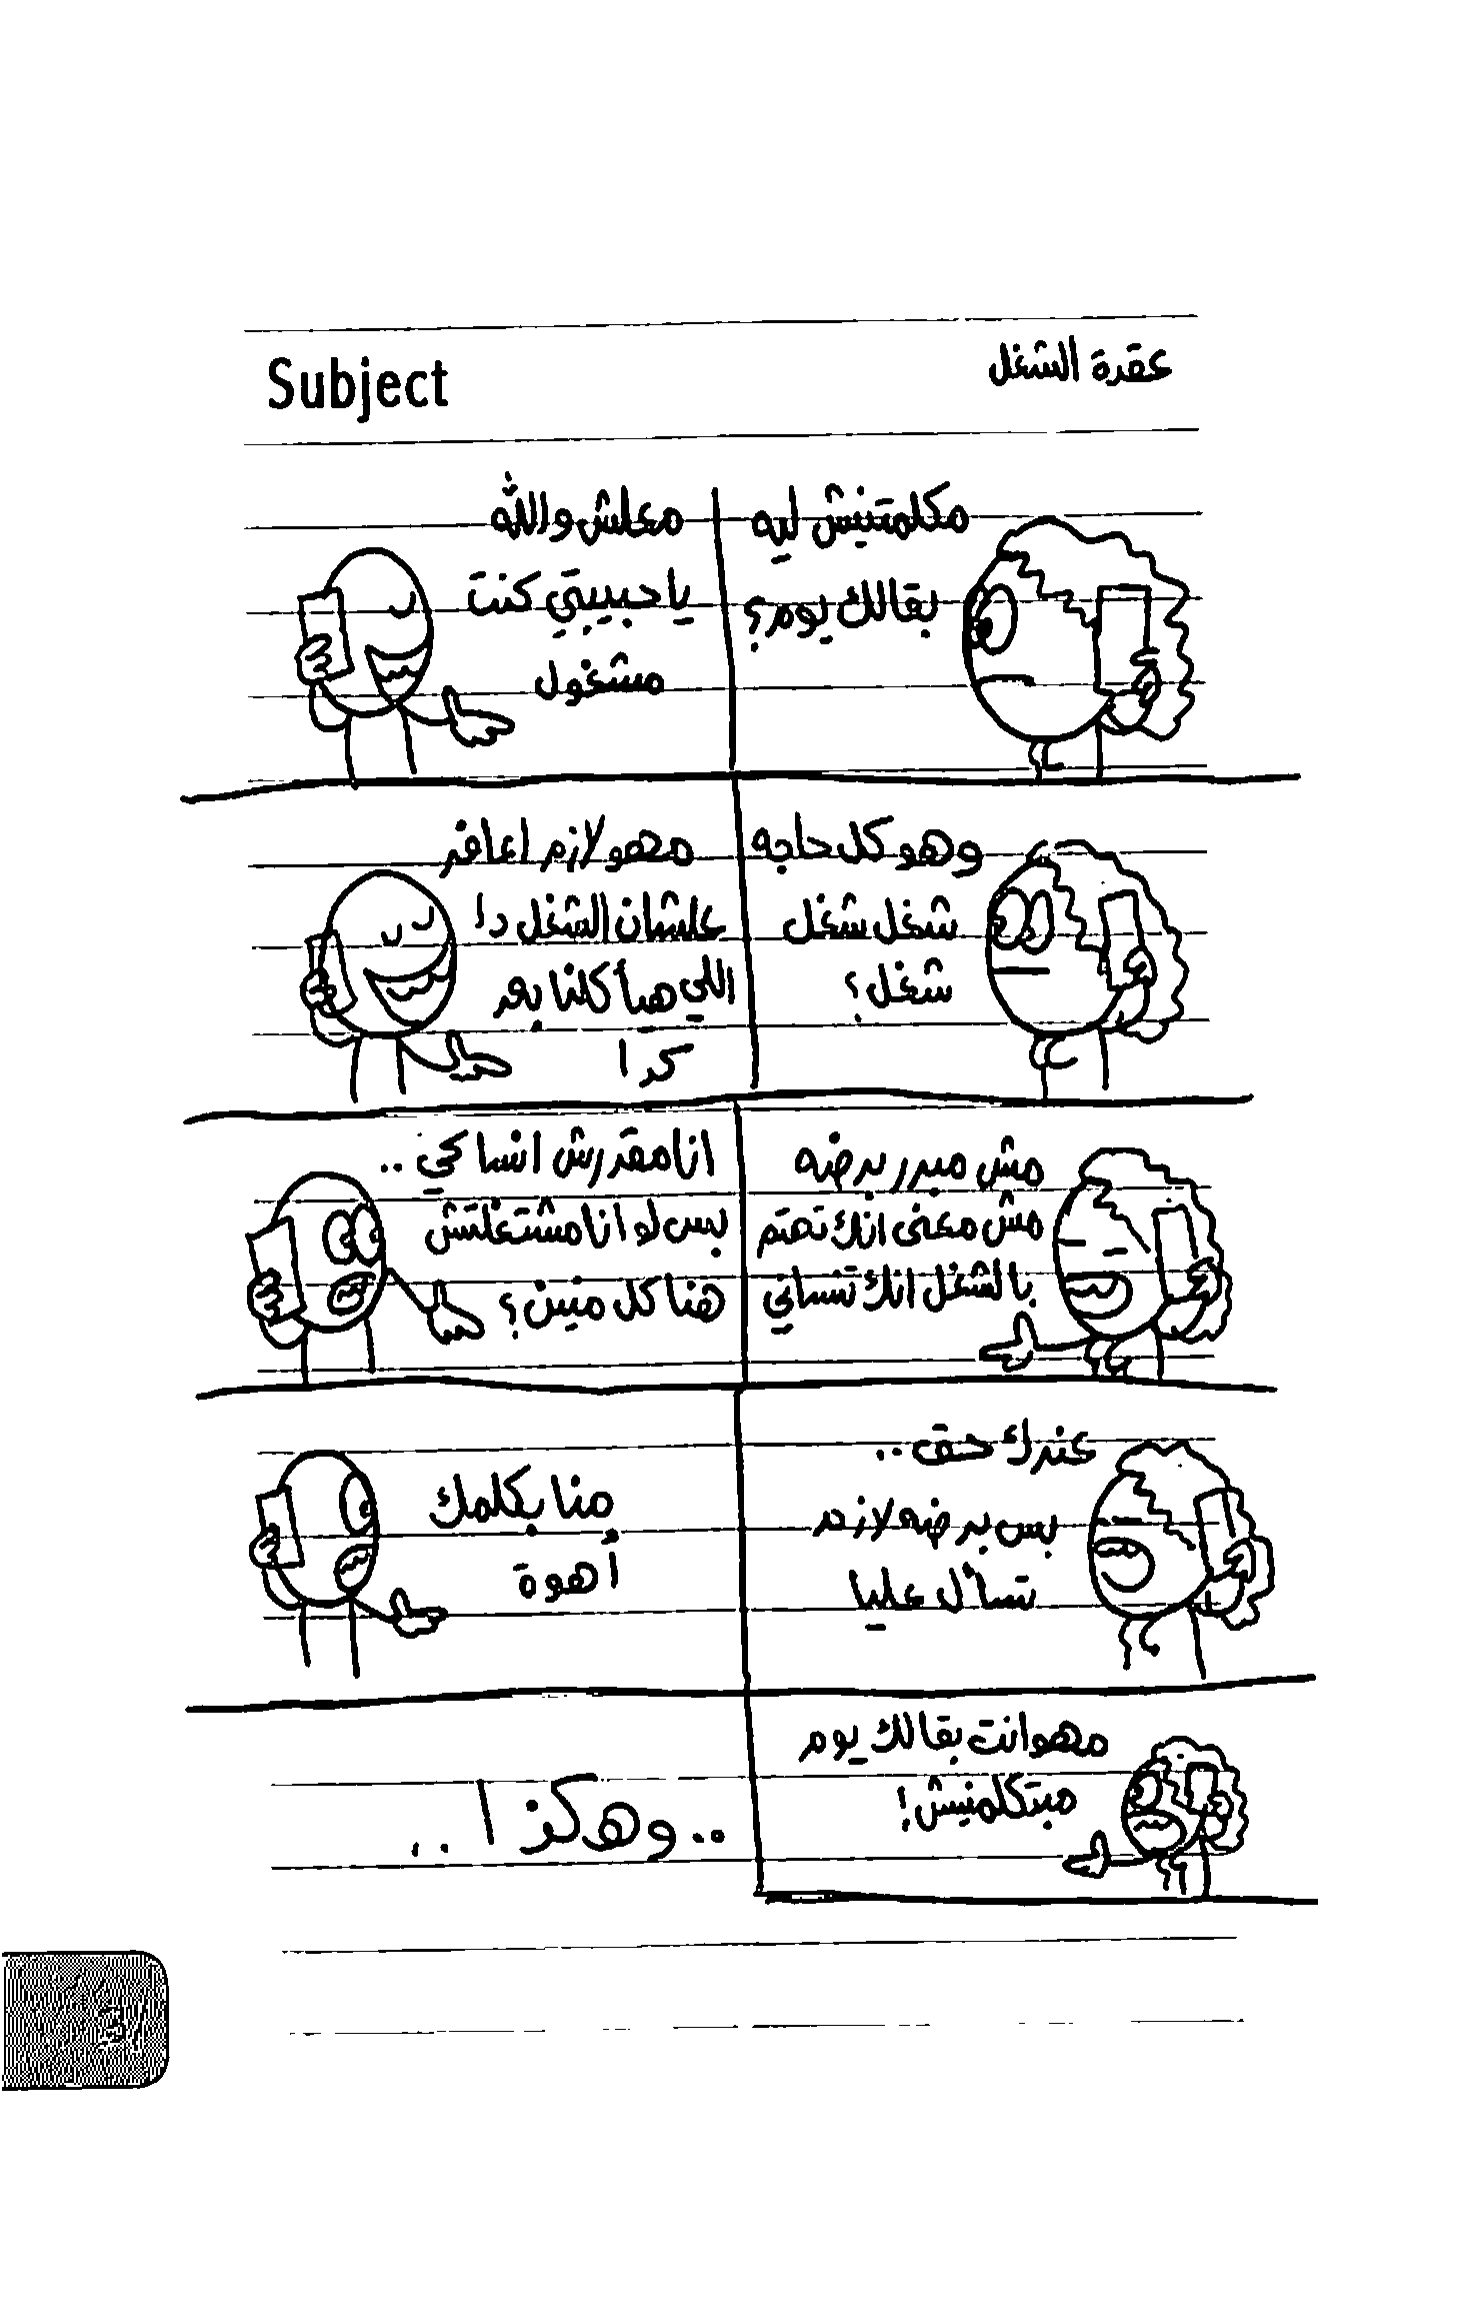 Subject
عقدة الشغل
مكلمتنيش ليه
بقالك يوم؟
معلش والله
يا حبيبتي كنت
مشغول
وهو كل حاجه
شغل شغل
شغل؟
مهو لازم اعافر
علشان الشغل دا
اللي هيأكلنا بعد
كدا
مش مبرر برضه
مش معنى انك تهتم
بالشغل انك تنساني
انا مقدرش انساكي..
بس لو انا مشتغلتش
هناكل منين؟
عندك حق..
بس برضه لازم
تسأل عليا
منا بكلمك
أهوة
مهو انت بقالك يوم
مبتكلمنيش!
..وهكذا..